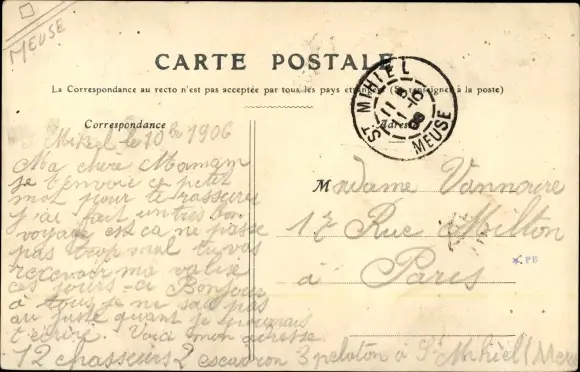 MEUSE
CARTE POSTALE
La Correspondance au recto n'est pas acceptée par tous les pays (Se renseigner à la poste)
ST MIHIEL
MEUSE
11
10
06
Correspondance
Adresse
Mihiel le 10 1906
Ma chere Maman
je t'envoie ce petit
mot pour te rassurer
j'ai fait un tres bon
voyage et ca ne passe
pas trop mal tu vas
recevoir ma valise
ces jours-ci Bonjour
à tous je ne sais pas
au juste quant je pourrais
t'écrire. Voici mon adresse
12 chasseurs 2 escadron 3 peloton à St Mihiel (Meuse
Madame Vannoore
17 Rue Milton
à Paris
PB